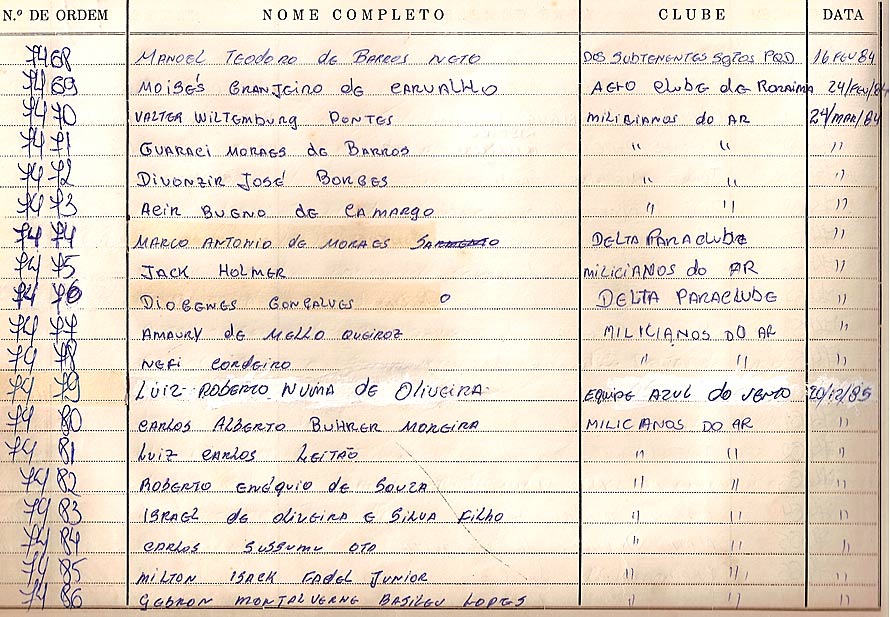 N.º DE ORDEM NOME COMPLETO CLUBE DATA
7468 MANOEL TEODORO de BARROS NETO DOS SUBTENENTES SGTOS PQD 16 FEV 84
7469 MOISÉS GRANJEIRO de CARVALHO AERO Clube de Roraima 24/FEV/84
7470 VALTER WILTEMBURG PONTES MILICIANOS do AR 24/MAR/84
7471 GUARACI MORAES de BARROS " " "
7472 DIVONZIR JOSÉ BORGES " " "
7473 ACIR BUENO de CAMARGO " " "
7474 MARCO ANTONIO de MORAES SARMENTO DELTA PARACLUBE "
7475 JACK HOLMER MILICIANOS do AR "
7476 DIOGENES GONÇALVES DELTA PARACLUBE "
7477 AMAURY de MELLO QUEIROZ MILICIANOS DO AR "
7478 NEFI CORDEIRO " " "
7479 LUIZ ROBERTO NUMA de OLIVEIRA EQUIPE AZUL do VENTO 20/12/85
7480 CARLOS ALBERTO BUHRER MOREIRA MILICIANOS DO AR "
7481 LUIZ CARLOS LEITÃO " " "
7482 ROBERTO ENÉQUIO de SOUZA " " "
7483 ISRAEL de OLIVEIRA E SILVA FILHO " " "
7484 CARLOS SUSSUMU OTA " " "
7485 MILTON ISACK FADEL JUNIOR " " "
7486 GEDRON MONTALVERNE BASILEU LOPES " " "